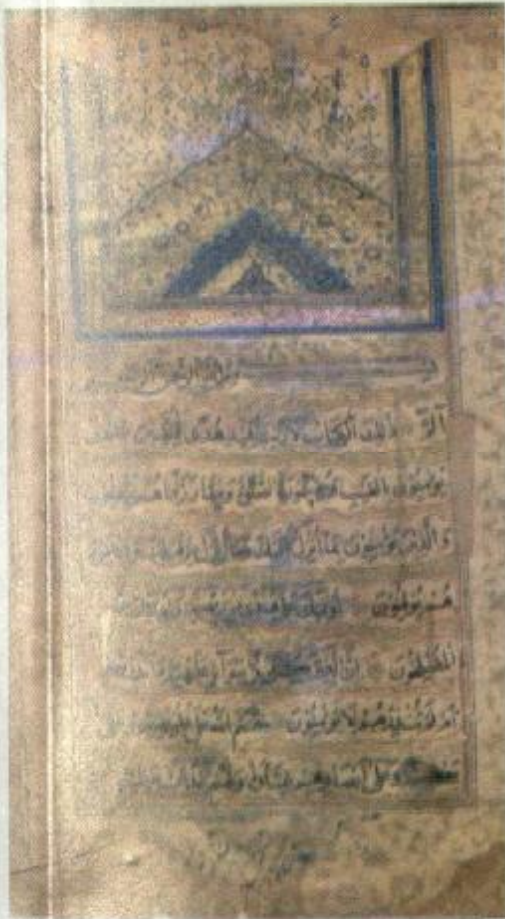 بسم الله الرحمن الرحيم
الم ذلك الكتاب لا ريب فيه هدى للمتقين الذين
يؤمنون بالغيب ويقيمون الصلوة ومما رزقناهم ينفقون
والذين يؤمنون بما أنزل اليك وما أنزل من قبلك
هم يوقنون اولئك على هدى من ربهم
المفلحون ان الذين كفروا سواء عليهم
ام لم تنذرهم لا يؤمنون ختم الله على قلوبهم
على أبصارهم غشاوة ولهم عذاب عظيم